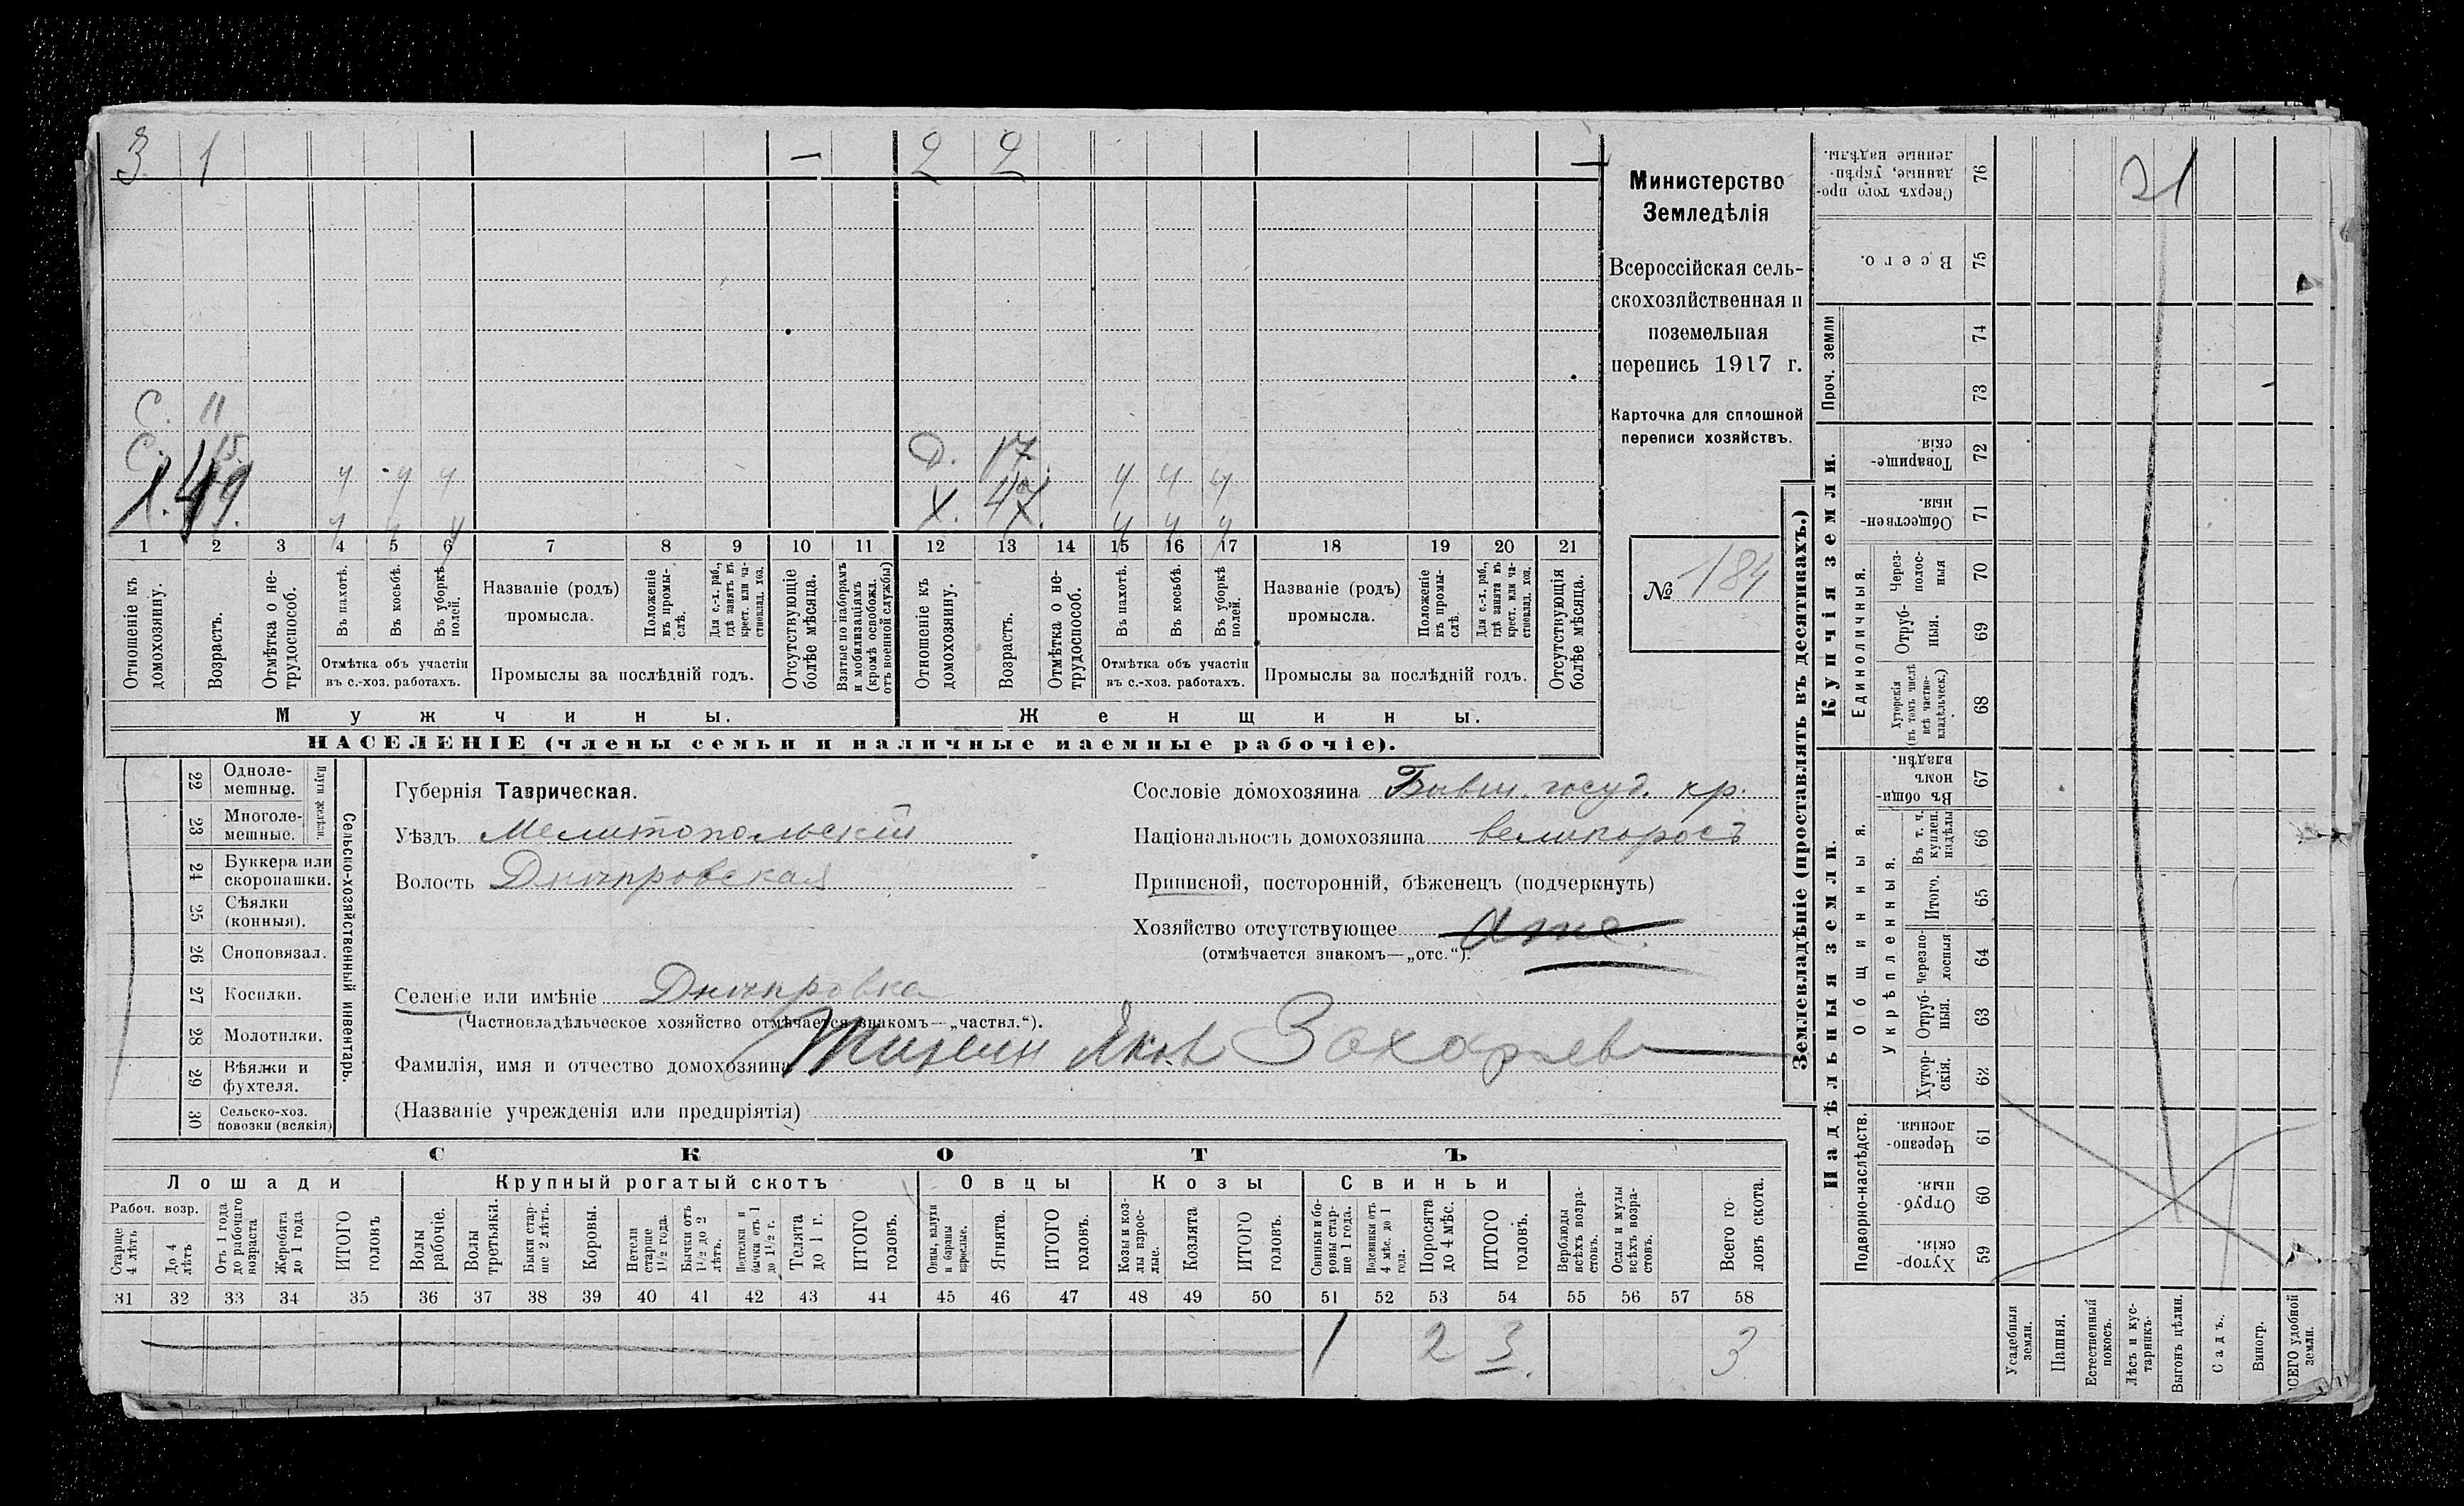 3 1 — 2 2 —
С. 11
С. 15. у у у Д. 17. у у у
Х. 49. у у у Х. 47. у у у
1 2 3 4 5 6 7 8 9 10 11 12 13 14 15 16 17 18 19 20 21
Отношеніе къ домохозяину.
Возрастъ.
Отмѣтка о не-
трудоспособ.
Въ пахотѣ.
Въ косьбѣ.
Въ уборкѣ
полей.
Отмѣтка объ участіи
въ с.-хоз. работахъ.
Названіе (родъ)
промысла.
Положеніе
въ промы-
слѣ.
Для с.-х. раб.,
гдѣ занятъ въ
крест. или ча-
стновлад. хоз.
Промыслы за послѣдній годъ.
Отсутствующіе
болѣе мѣсяца.
Взятые по наборамъ
и мобилизаціямъ
(кромѣ освобожд.
отъ военной службы)
Отношеніе къ
домохозяину.
Возрастъ.
Отмѣтка о не-
трудоспособ.
Въ пахотѣ.
Въ косьбѣ.
Въ уборкѣ
полей.
Отмѣтка объ участіи
въ с.-хоз. работахъ.
Названіе (родъ)
промысла.
Положеніе
въ промы-
слѣ.
Для с.-х. раб.,
гдѣ занята въ
крест. или ча-
стновлад. хоз.
Промыслы за послѣдній годъ.
Отсутствующія
болѣе мѣсяца.
Мужчины. Женщины.
НАСЕЛЕНІЕ (члены семьи и наличные наемные рабочіе).
Министерство
Земледѣлія
Всероссійская сель-
скохозяйственная и
поземельная
перепись 1917 г.
Карточка для сплошной
переписи хозяйствъ.
№ 184
22 Одноле-
мешные.
23 Многоле-
мешные.
24 Буккера или
скоропашки.
25 Сѣялки
(конныя).
26 Сноповязал.
27 Косилки.
28 Молотилки.
29 Вѣялки и
фухтеля.
30 Сельско-хоз.
повозки (всякія)
Сельско-хозяйственный инвентарь.
Губернія Таврическая.
Уѣздъ Мелитопольскій
Волость Днѣпровская
Селеніе или имѣніе Днѣпровка
(Частновладѣльческое хозяйство отмѣчается знакомъ—„частвл.“).
Фамилія, имя и отчество домохозяина Яков Захарьев
(Названіе учрежденія или предпріятія)
Сословіе домохозяина Бывш. госуд. кр.
Національность домохозяина великоросъ
Приписной, посторонній, бѣженецъ (подчеркнуть)
Хозяйство отсутствующее
(отмѣчается знакомъ—„отс.“).
СКОТЪ
Лошади Крупный рогатый скотъ Овцы Козы Свиньи
Рабоч. возр.
Старше
4 лѣтъ
До 4
лѣтъ
Отъ 1 года
до рабочаго
возраста
Жеребята
до 1 года
ИТОГО
головъ
Волы
рабочіе.
Волы
третьяки.
Быки стар-
ше 2 лѣтъ.
Коровы.
Нетели
старше
1½ года.
Бычки отъ
1½ до 2
лѣтъ.
бычки отъ 1
до 1½ г.
Телята
до 1 г.
ИТОГО
головъ.
Овцы, валухи
и бараны
взрослые.
Ягнята.
ИТОГО
головъ.
Козы и коз-
лы взрос-
лые.
Козлята
ИТОГО
головъ.
Свиньи и бо-
ровы стар-
ше 1 года.
Подсвинки отъ
4 мѣс. до 1
года.
Поросята
до 4 мѣс.
ИТОГО
головъ.
Верблюды
всѣхъ возра-
стовъ.
Ослы и мулы
всѣхъ возра-
стовъ.
Всего го-
ловъ скота.
31 32 33 34 35 36 37 38 39 40 41 42 43 44 45 46 47 48 49 50 51 52 53 54 55 56 57 58
1 2 3 3
Землевладѣніе (проставлять въ десятинахъ.)
Надѣльныя земли. Купчія земли. Проч. земли
Подворно-наслѣдств.
Общинныя.
Укрѣпленныя.
Единоличныя.
59 Хутор-
скія.
60 Отруб-
ныя.
61 Черезпо-
лосныя.
62 Хутор-
скія.
63 Отруб-
ныя.
64 Черезпо-
лосныя
65 Итого.
66 Въ т. ч.
куплен.
надѣлы
67 Въ общи-
номъ
владѣн.
68 Хуторскія
(въ томъ числѣ
всѣ частно-
владѣльческ.)
69 Отруб-
ныя.
70 Через-
полос-
ныя
71 Обществен-
ныя.
72 Товарище-
скія.
73
74
75 Всего.
76 Сверхъ того про-
данные, укрѣп-
ленные надѣлы.
21
Усадебныя
земли.
Пашня.
Естественный
покосъ.
Лѣсъ и кус-
тарникъ.
Выгонъ цѣлин.
Садъ.
Виногр.
ВСЕГО удобной
земли.